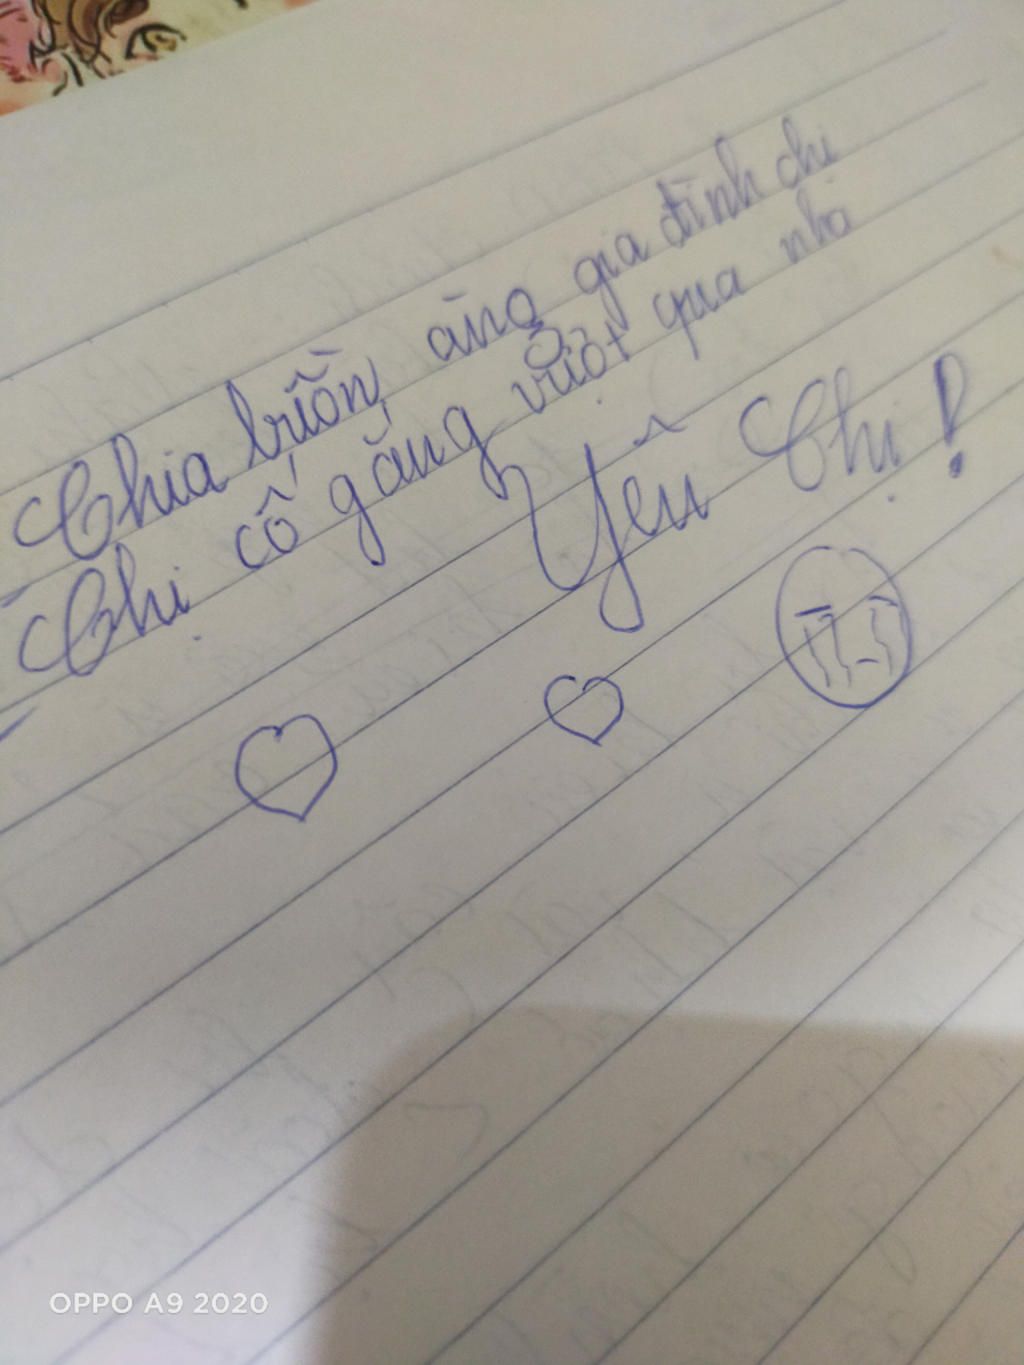 Chia buồn cùng gia đình chị
Chị cố gắng vượt qua nha
Yêu Chị!
OPPO A9 2020